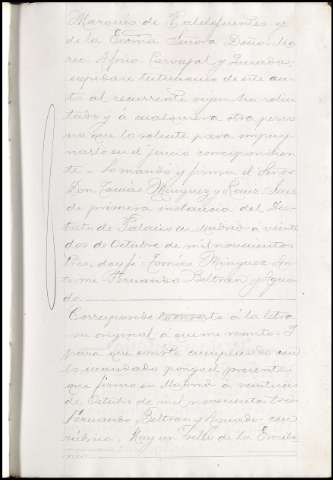 Marqués de Valdefuentes y
de la Excma Señora Doña
Carvajal y
expídase testimonio de este au-
to al recurrente según ha solici-
tado y á cualquiera otra perso-
na que lo solicite para impug-
narlo en el juicio correspondien-
te = Lo mandó y firma el Señor
Don Tomás Mínguez y Juez
de primera instancia del Dis-
trito de Palacio de Madrid á veinti
dos de Octubre de mil novecientos
tres, doy fé = Tomás Mínguez = An-
te mí = Fernando Beltrán y Agua-
do
Corresponde á la letra
su original á que me remito = Y
para que conste cumpliendo con
lo mandado pongo el presente
que firmo en Madrid á veintiseis
de Octubre de mil novecientos tres
Fernando Beltrán y Aguado = con
rúbrica. Hay un Sello de la Escriba-
nía